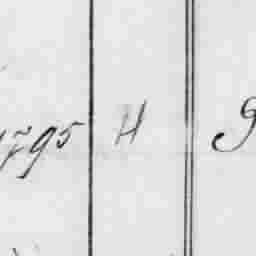 1795 H 9